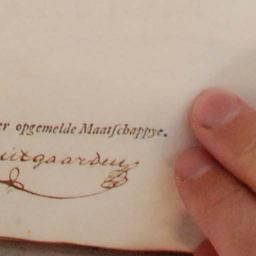 er opgemelde Maatſchappye.
uitgaarden